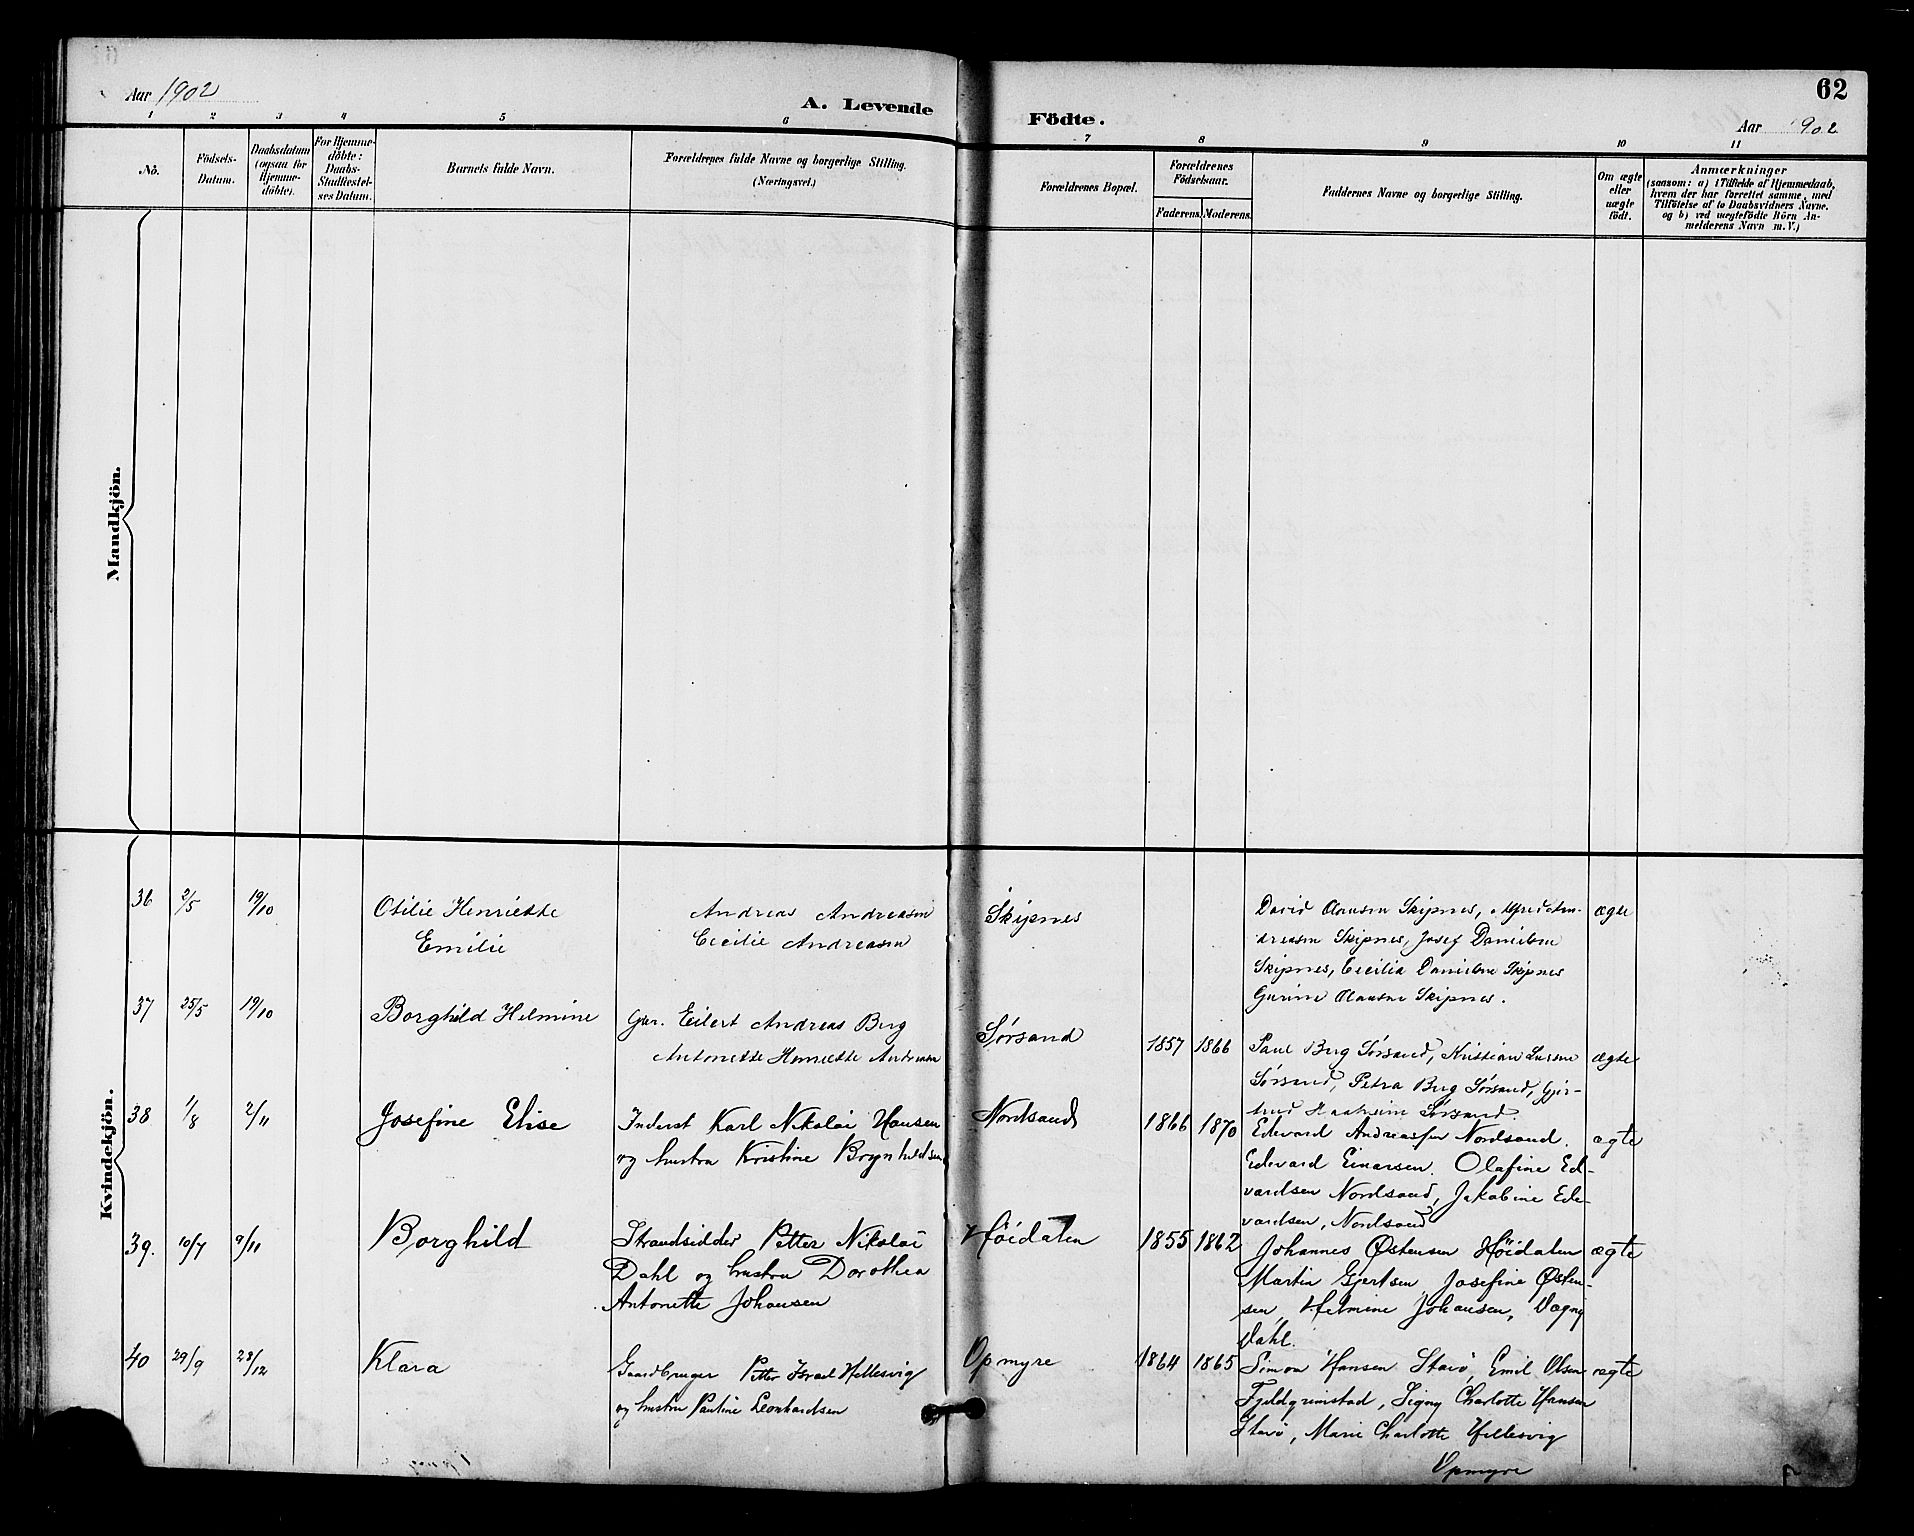 Aar 1902
A. Levende
Födte.
62
Aar 1902
1 2 3 4 5 6 7 8 9 10 11
No.
Födsels-
Datum.
Daabsdatum
(ogsaa for
Hjemme-
döbte).
For Hjemme-
döbte:
Daabs-
Stadfæstel-
ses Datum.
Barnets fulde Navn.
Forældrenes fulde Navne og borgerlige Stilling.
(Næringsvei.)
Forældrenes Bopæl.
Forældrenes
Födselsaar.
Faderens. Moderens.
Faddernes Navne og borgerlige Stilling.
Om ægte
eller
uægte
födt.
Anmærkninger
(saasom: a) i Tilfælde af Hjemmedaab,
hvem der har forrettet samme, med
Tilföielse af to Daabsvidners Navne.
og b) ved uægtefödte Börn An-
melderens Navn m. V.)
Mandkjön.
Kvindekjön.
36 2/5 19/10
Otilie Henriette
Emilie
Andreas Andreasen
Cecilie Andreasen
Skipnes
David Olausen Skipnes, Alfred An-
dreasen Skipnes, Josef Danielsen
Skipnes, Cecilia Danielsen Skipnes
Gurine Olausen Skipnes.
ægte
37 25/5 19/10
Borghild Helmine
Gbr. Eilert Andreas Berg
Antonette Henriette Andreasen
Sørsand
1857 1866
Paul Berg Sørsand, Kristian Larsen
Sørsand, Petra Berg Sørsand, Gjer-
trud Sørsand.
ægte
38 1/8 2/11
Josefine Elise
Inderst Karl Nikolai Hansen
og hustru Kristine Brynhildsen
Nordsand
1866 1870
Edevard Andreassen Nordsand.
Edevard Einarsen. Olafine Ed-
vardsen Nordsand, Jakobine Ede-
vardsen, Nordsand
ægte
39. 10/7 9/11
Borghild
Strandsidder Petter Nikolai
Dahl og hustru Dorothea
Antonette Johansen
Höidalen
1855 1862
Johannes Østensen Höidalen
Martin Gjertsen Josefine Østen-
sen, Helmine Johansen, Dagny
Dahl.
ægte
40 29/9 28/12
Klara
Gaardbruger Petter Israel Hellesvig
og hustru Pauline Leonhardsen
Opmyre
1864 1865
Simon Hansen Starø, Emil Olsen
Fjeldgrimstad, Signy Charlotte Hansen
Starø, Marie Charlotte Hellesvig
Opmyre
ægte